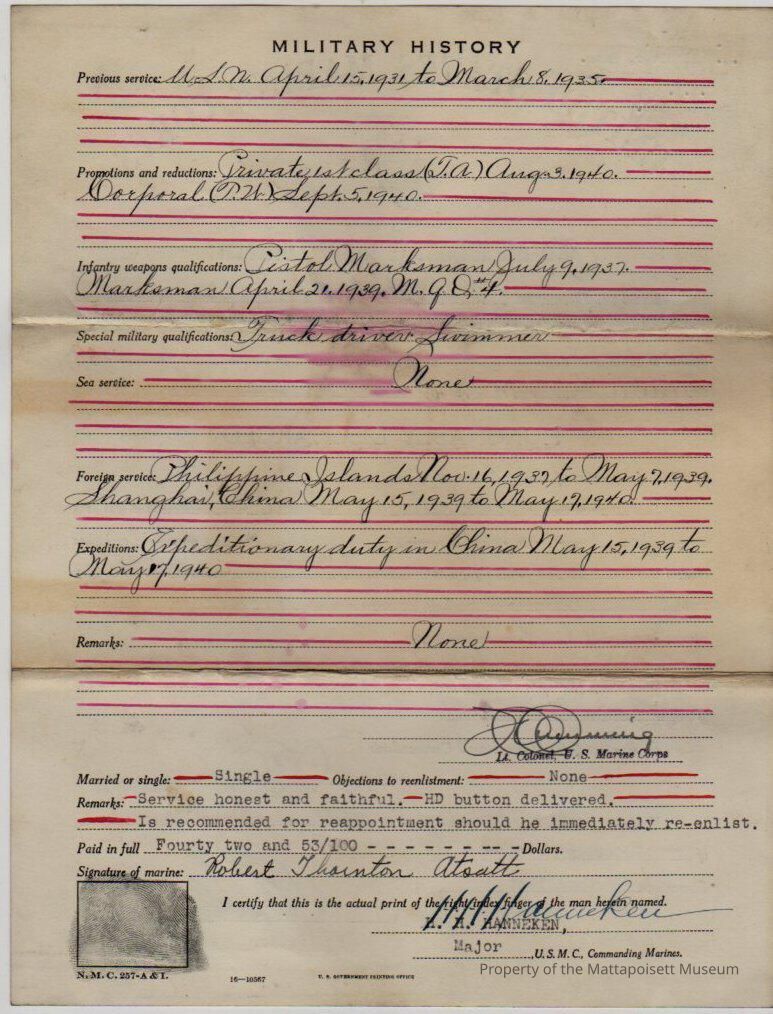 MILITARY HISTORY
Previous service: U.S.N. April 15, 1931 to March 8, 1935.
Promotions and reductions: Private 1st class (T.A.) Aug. 3. 1940.
Corporal (T.W.) Sept. 5, 1940.
Infantry weapons qualifications: Pistol Marksman July 9, 1937.
Marksman April 21, 1939. M. G. D, #4.
Special military qualifications: Truck driver. Swimmer
Sea service: None
Foreign service: Philippine Islands Nov. 16, 1937 to May 7, 1939.
Shanghai, China May 15, 1939 to May 17, 1940.
Expeditions: Expeditionary duty in China May 15, 1939 to
May 17, 1940
Remarks: None
Lt. Colonel, U. S. Marine Corps
Married or single: Single Objections to reenlistment: None
Remarks: Service honest and faithful. HD button delivered.
Is recommended for reappointment should he immediately re-enlist.
Paid in full Fourty two and 53/100 - - - - - - -- - Dollars.
Signature of marine: Robert Thornton Atsatt
I certify that this is the actual print of the right index finger of the man herein named.
H. H. Hanneken
H. H. HANNEKEN,
Major, U.S.M.C., Commanding Marines.
N. M. C. 257-A & I.
16—10567
U. S. GOVERNMENT PRINTING OFFICE
Property of the Mattapoisett Museum